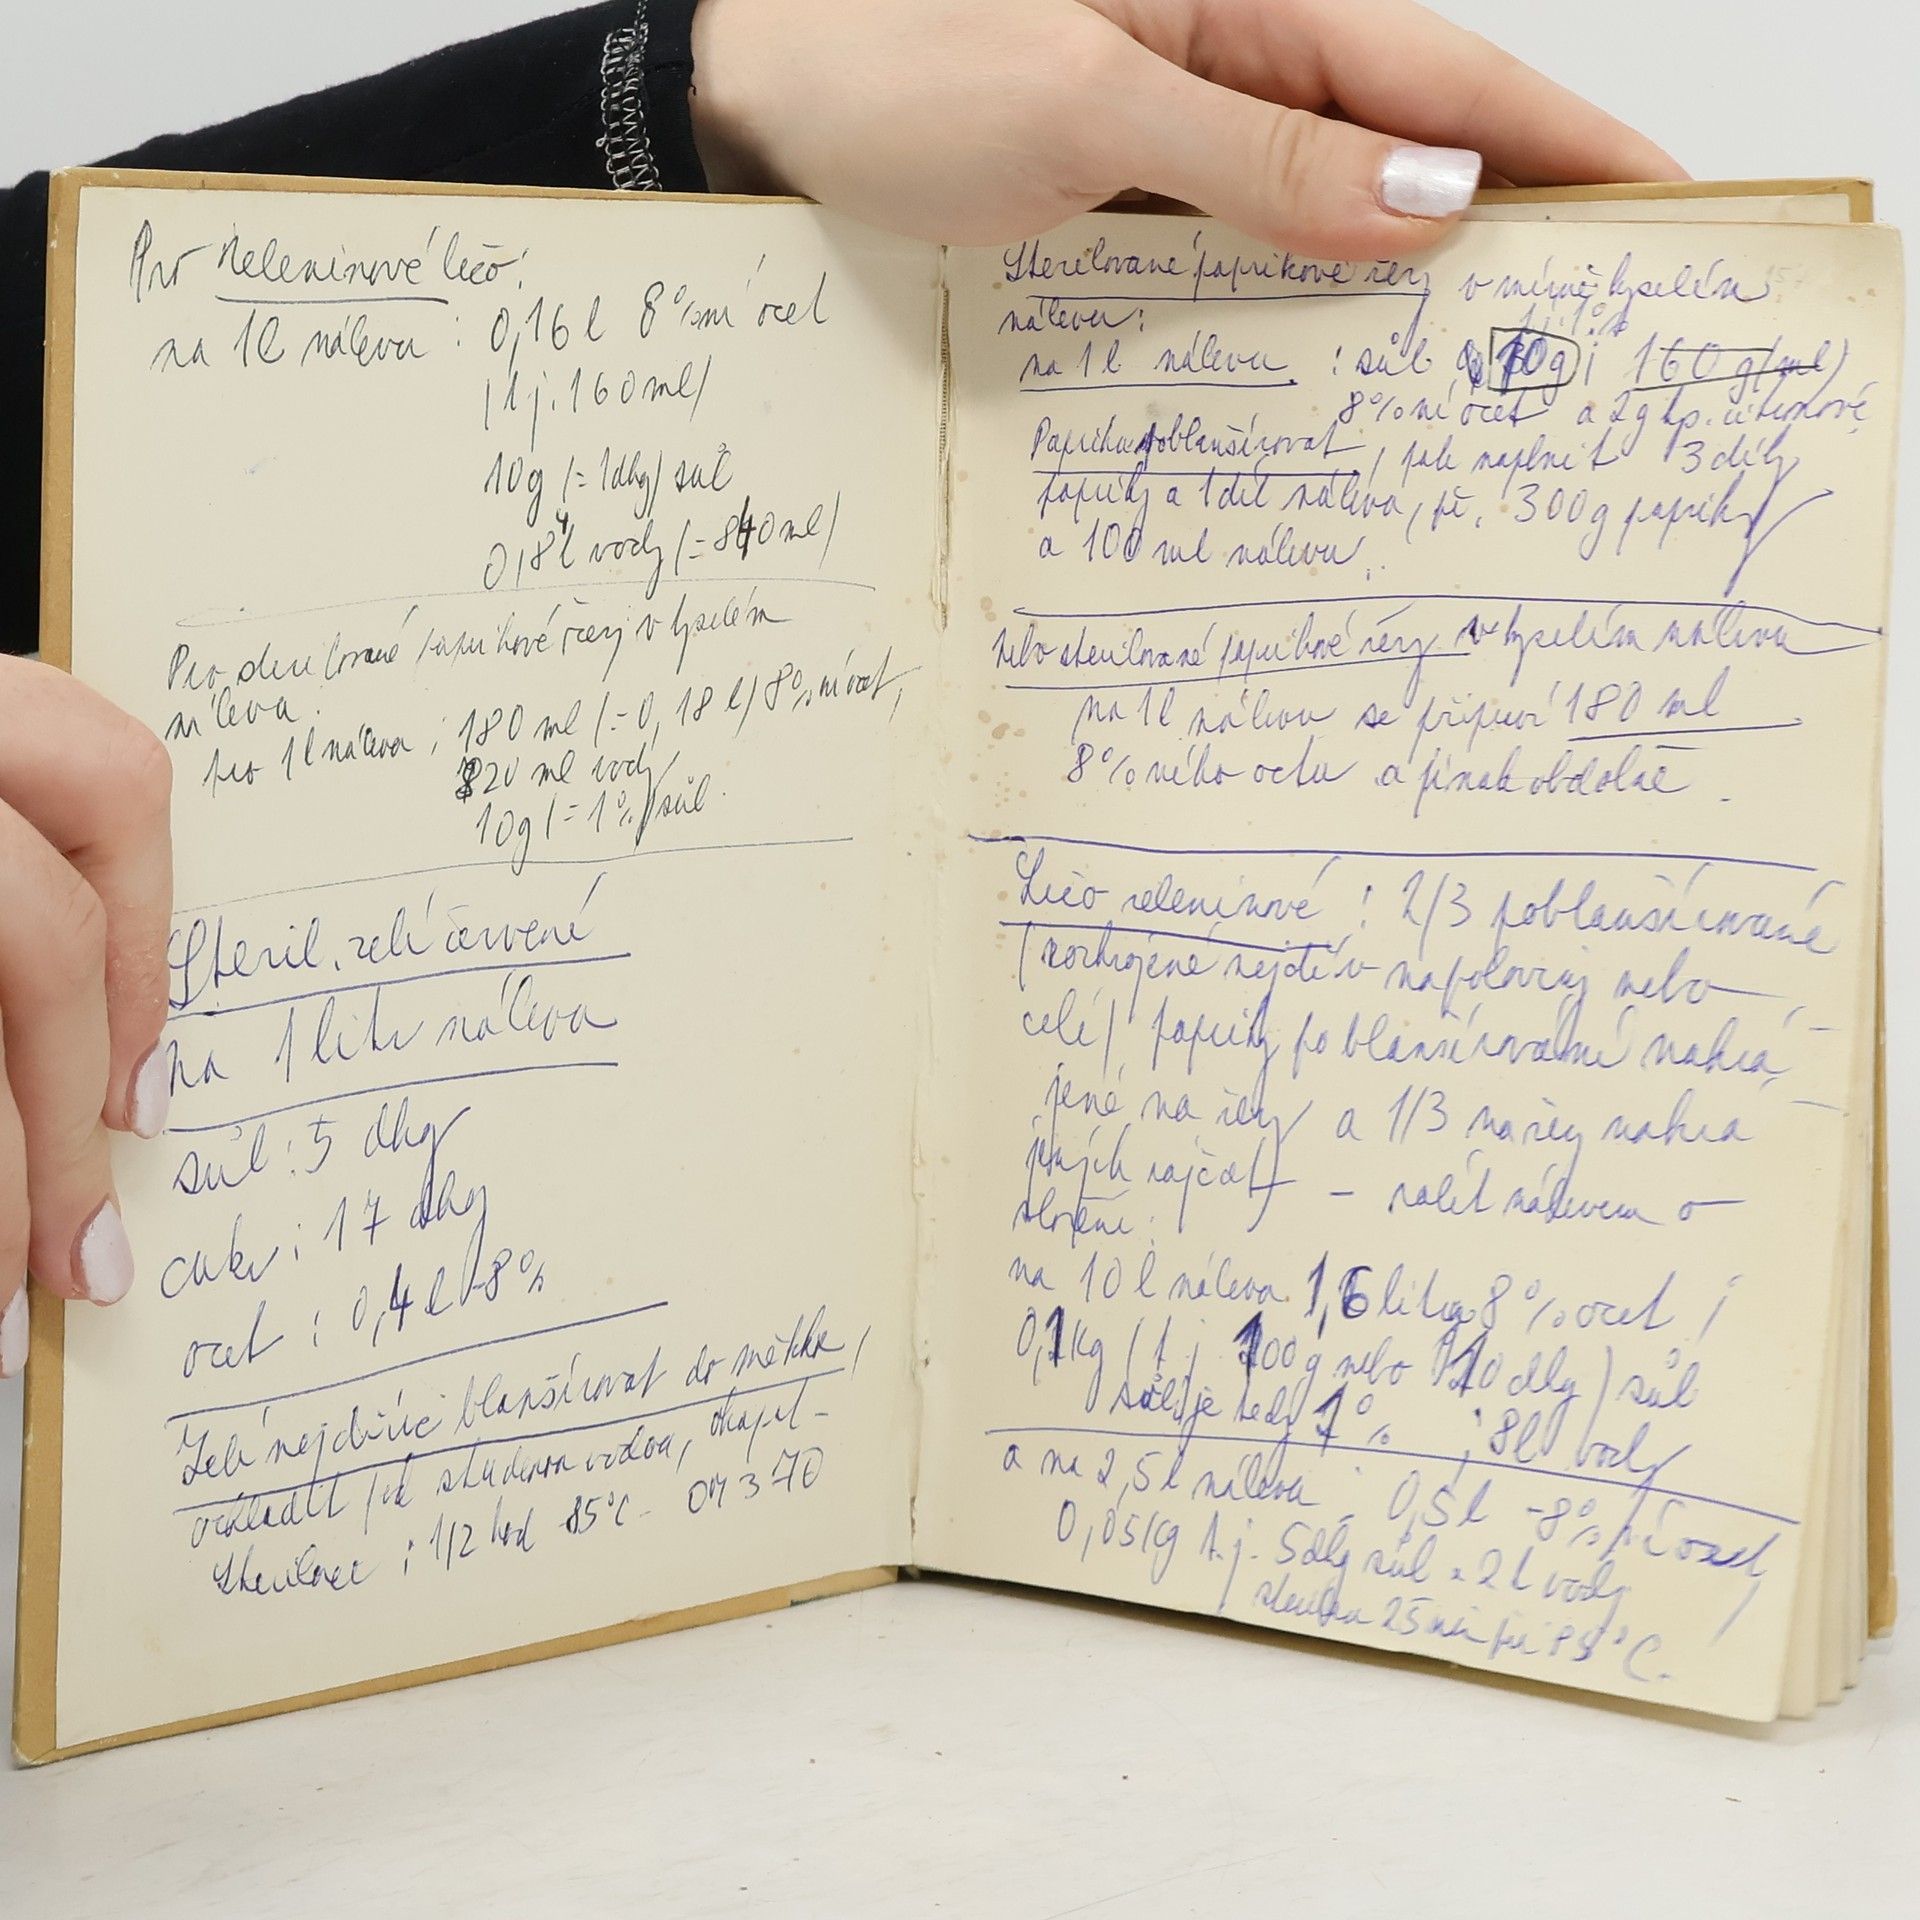 Pro zeleninové lečo:
na 1l nálevu : 0,16 l 8%ní ocet
(tj. 160 ml)
10g (= 1dkg) sůl
0,84l vody (= 840 ml)
Pro sterilované paprikové řezy v kyselém
nálevu.
pro 1l nálevu : 180 ml (= 0,18 l) 8%ní ocet,
820 ml vody
10g (= 1%) sůl.
Steril. zelí červené
na 1 litr nálevu
sůl : 5 dkg
cukr : 17 dkg
ocet : 0,4 l 8%
Zelí nejdříve blanšírovat do měkka,
ochladit pod studenou vodou, okapat -
Sterilace : 1/2 hod 85°C - 04 370
Sterilované paprikové řezy v mírně kyselém
nálevu:
tj. 1%
na 1 l nálevu : sůl 10g ; 160 g (ml)
8%ní ocet a 2g kys. citronové.
Papriku poblanšírovat, pak naplnit 3 díly
papriky a 1 díl nálevu, př. 300g papriky
a 100 ml nálevu.
nebo sterilované paprikové řezy v kyselém nálevu
na 1l nálevu se připraví 180 ml
8%ního octa a jinak obdobně.
Lečo zeleninové : 2/3 poblanšírované
(rozkrojené nejdřív napoloviny nebo
celé) papriky po blanšírování nakrá-
jené na řezy a 1/3 na řezy nakrá
jených rajčat - zalít nálevem o
složení:
na 10 l nálevu 1,6 litru 8% ocet ;
0,1kg (tj. 100g nebo 10 dkg) sůl
soli je tedy 1% ; 8l vody
a na 2,5l nálevu : 0,5 l -8%ní ocet,
0,05kg t.j. 5dkg sůl a 2l vody
sterilace 25 min při 85°C.